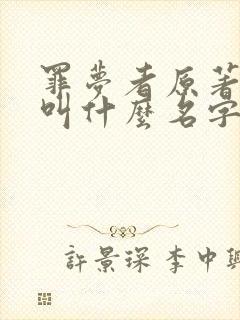 罪夢者原著
叫什麼名字
許景琛 李中興